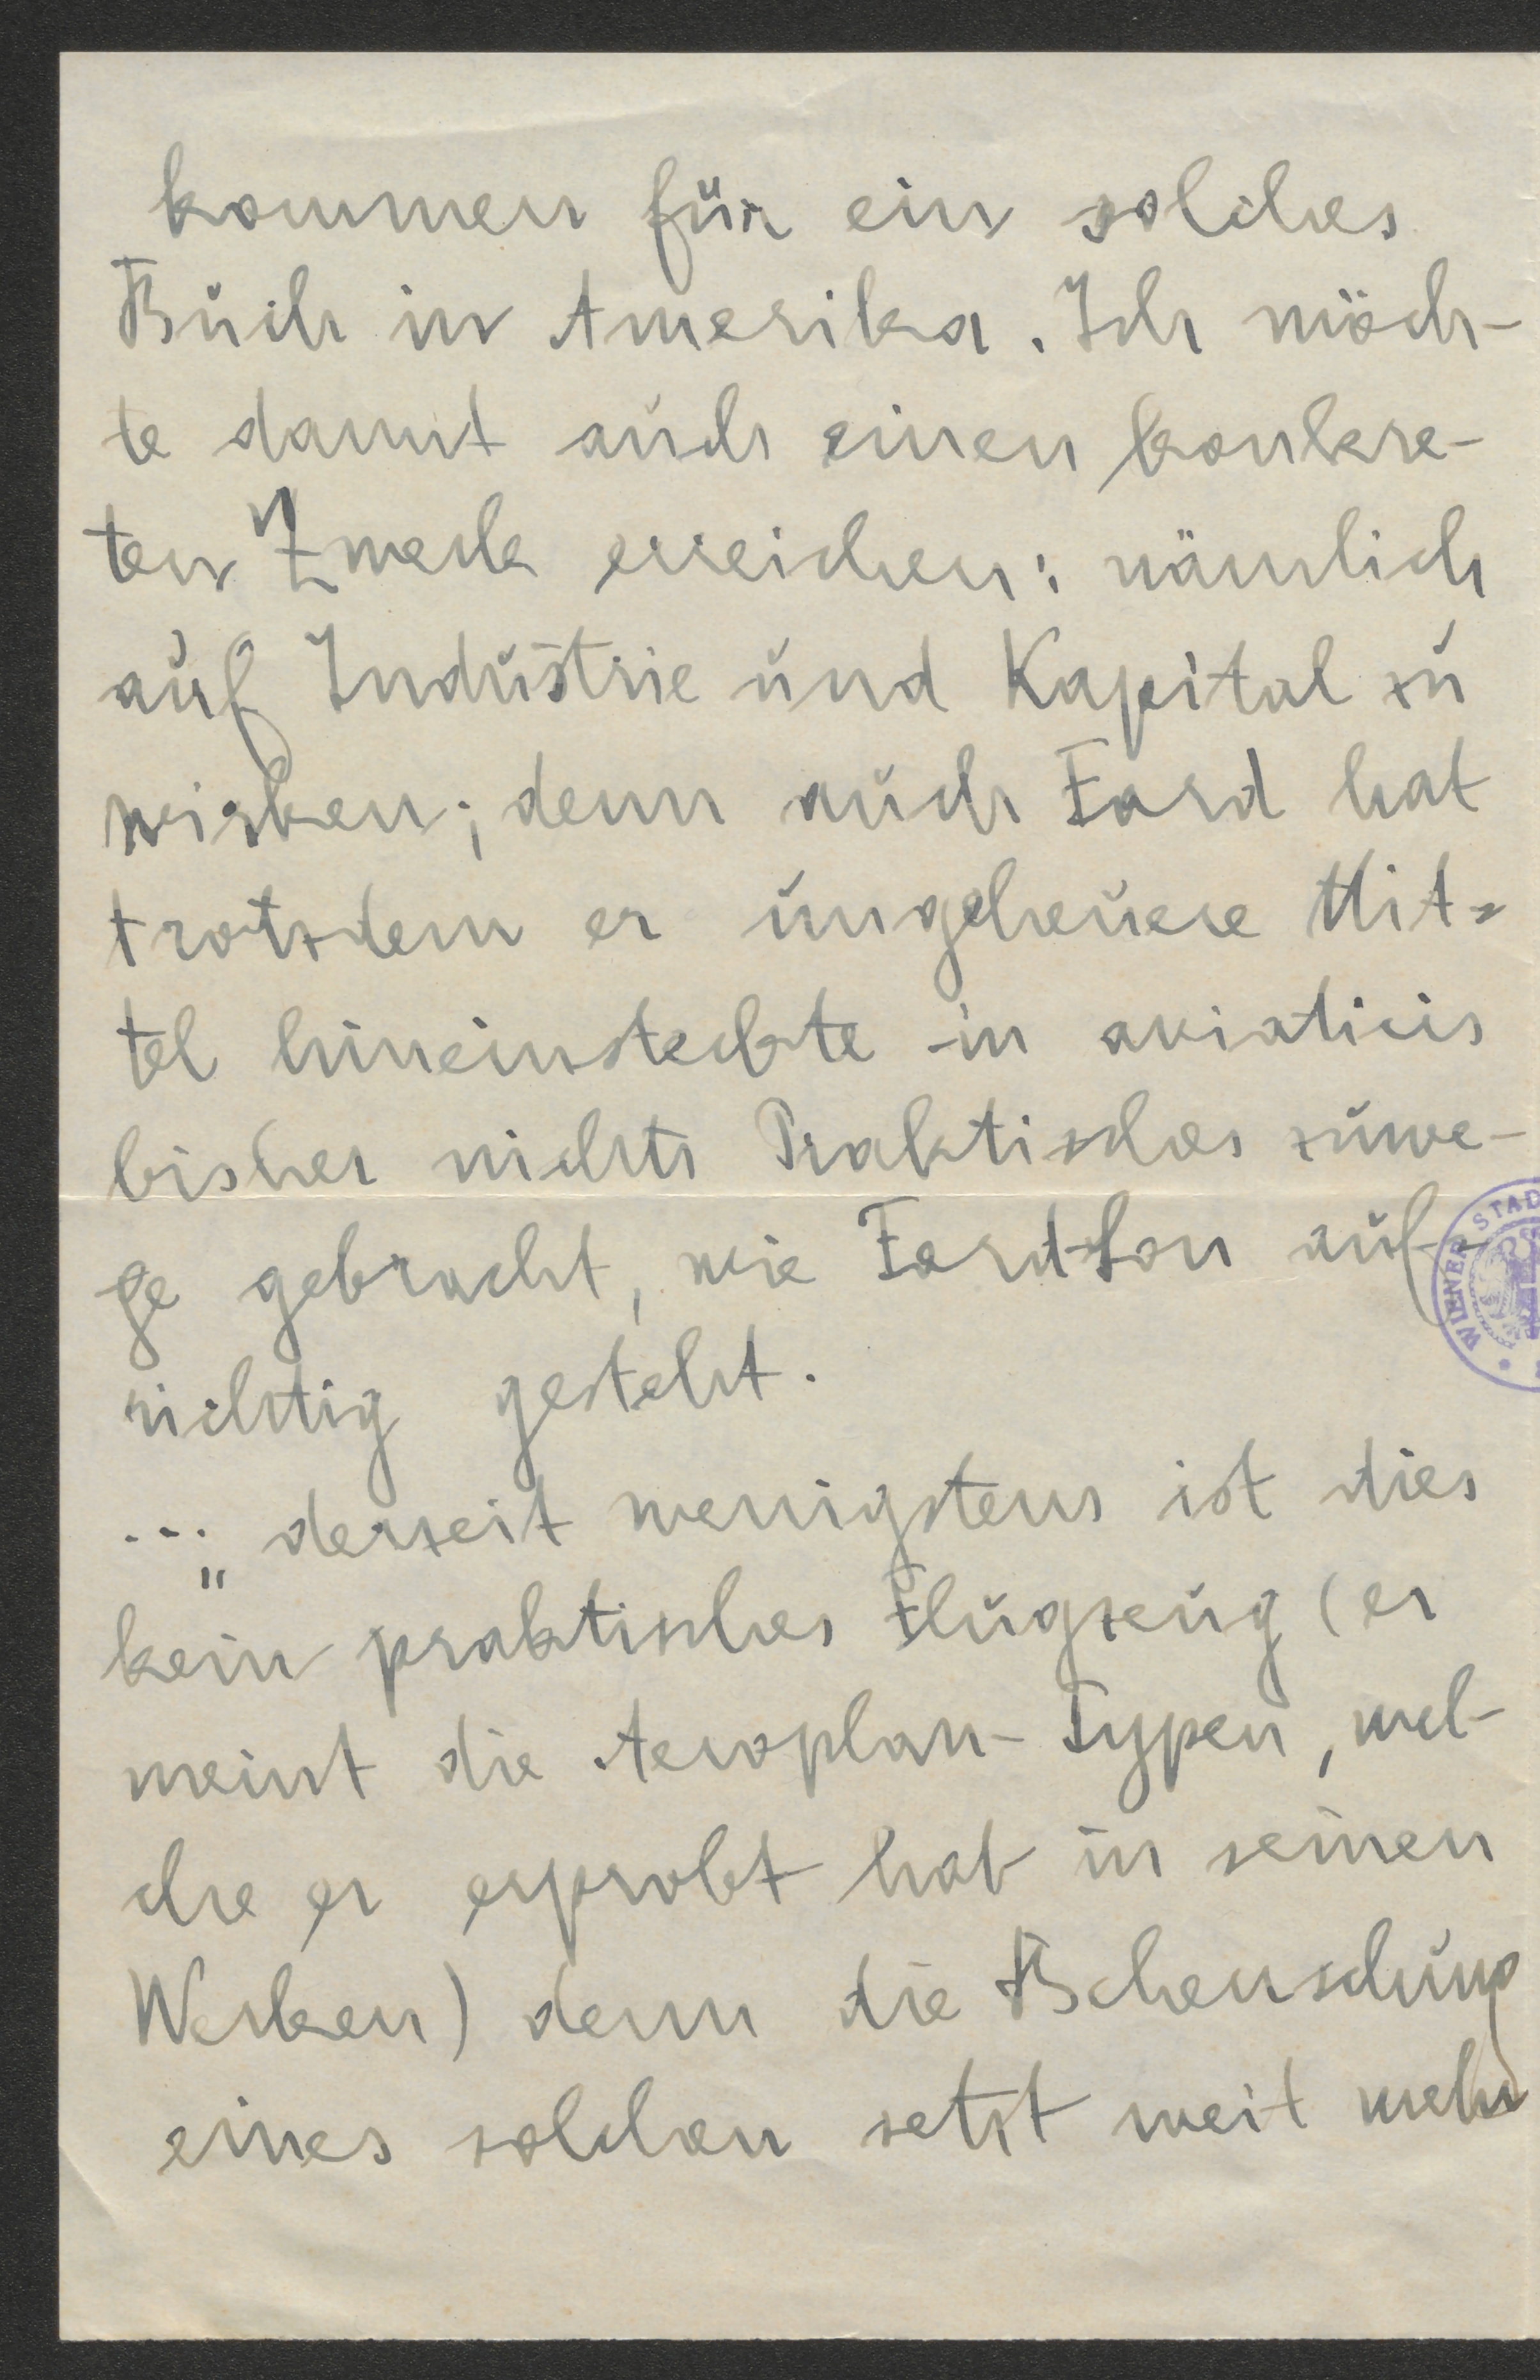 kommen für ein solches
Buch in Amerika. Ich möch-
te damit auch einen konkre-
ten Zweck erreichen: nämlich
auf Industrie und Kapital zu
wirken; denn auch Ford hat
trotzdem er ungeheuere Mit-
tel hineinsteckte in aviaticis
bisher nichts Praktisches zuwe-
ge gebracht, wie Ford-Son auf-
richtig gesteht.
... „derzeit wenigstens ist dies
kein praktisches Flugzeug (er
meint die Aeroplan-Typen, wel-
che er erprobt hat in seinen
Werken) denn die Beherrschung
eines solchen setzt weit mehr
WIENER STAD